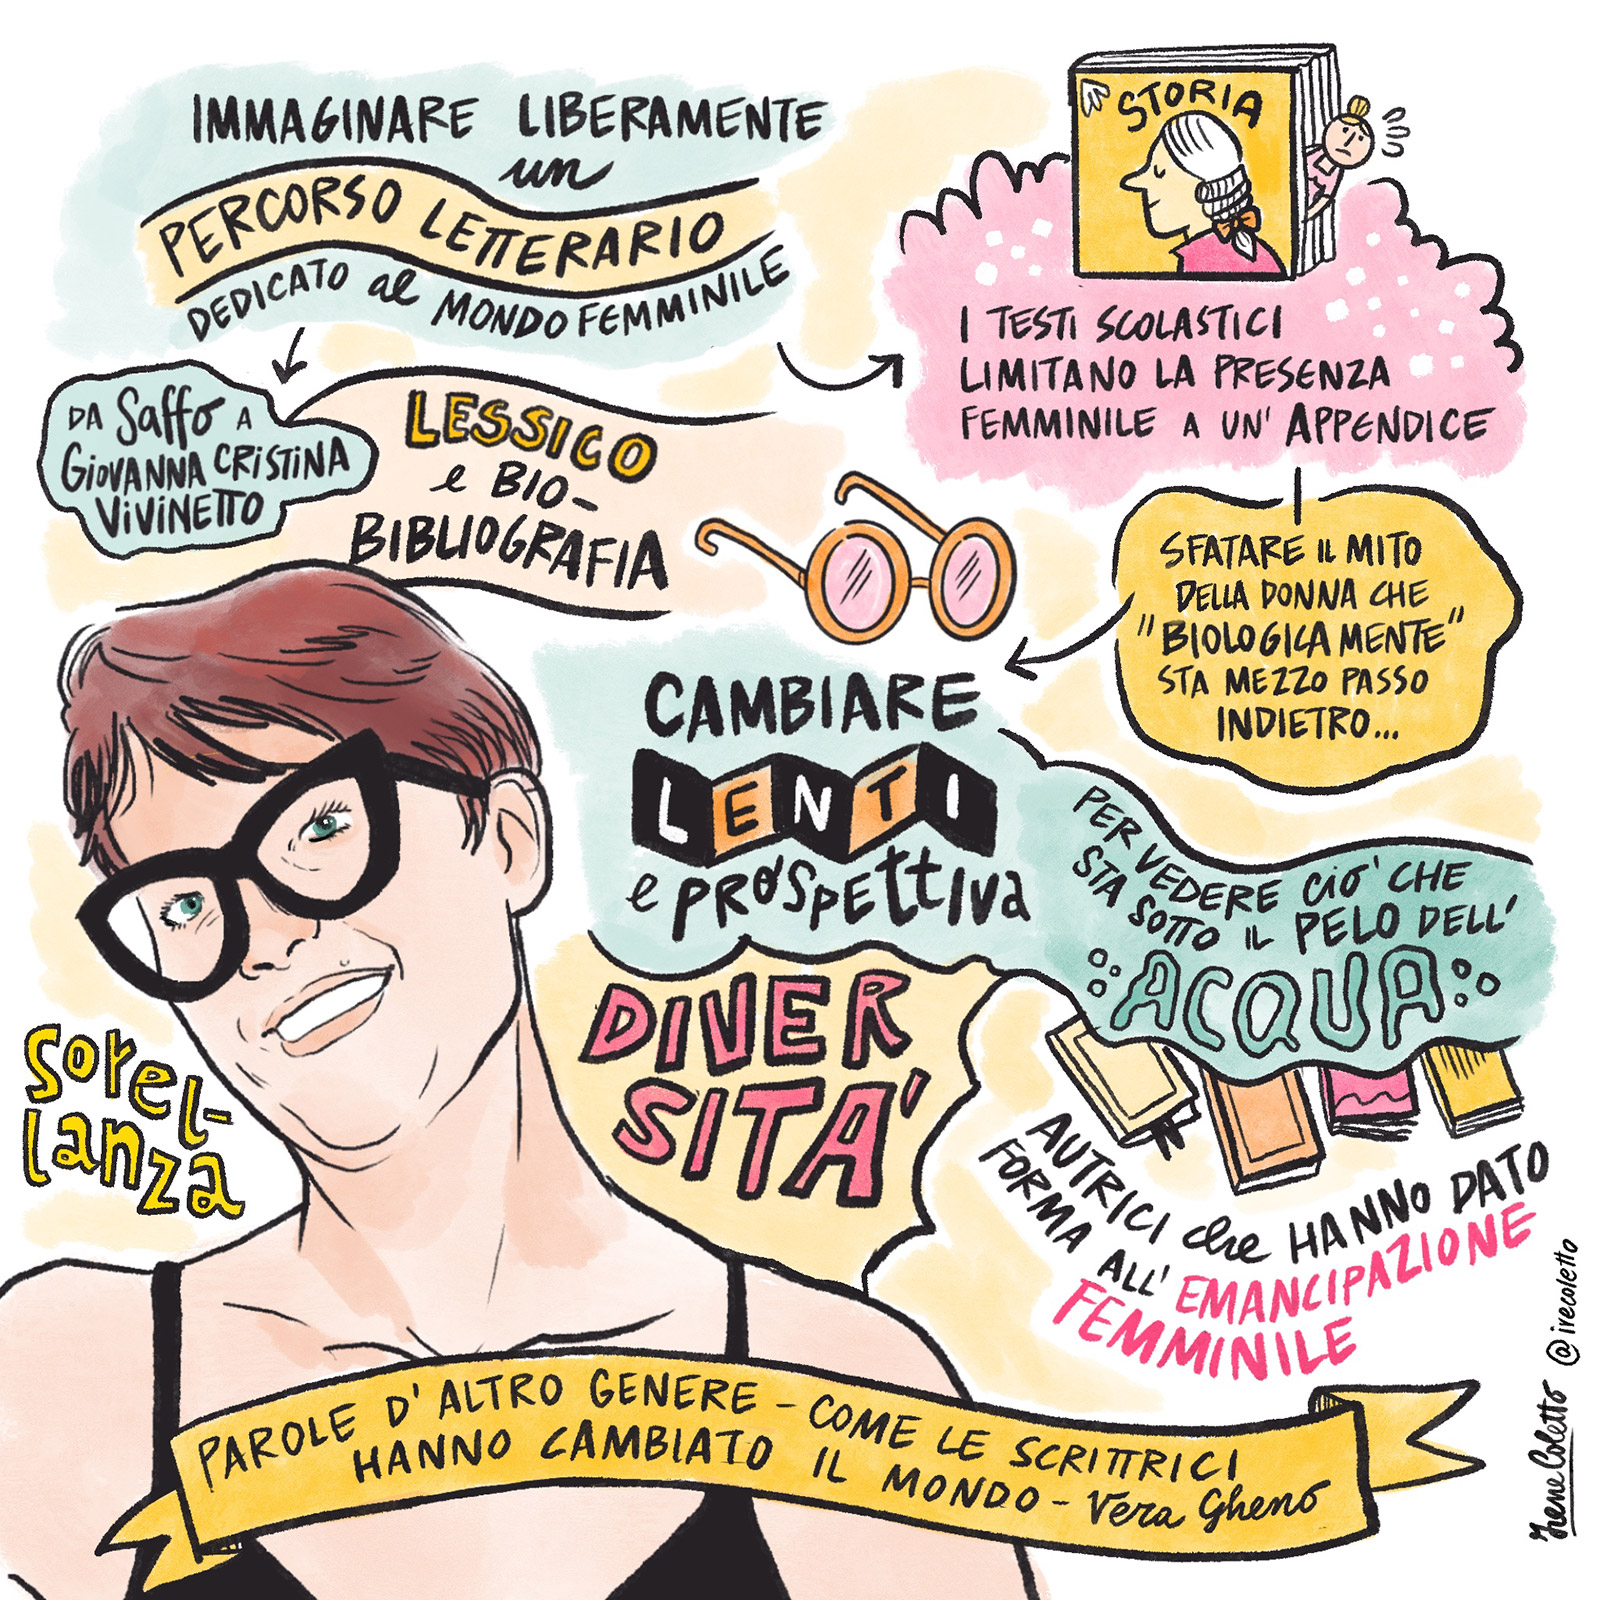 IMMAGINARE LIBERAMENTE
un
PERCORSO LETTERARIO
DEDICATO al MONDO FEMMINILE
STORIA
I TESTI SCOLASTICI
LIMITANO LA PRESENZA
FEMMINILE A UN' APPENDICE
DA Saffo A
GIOVANNA CRISTINA
VIVINETTO
LESSICO
e BIO-
BIBLIOGRAFIA
SFATARE IL MITO
DELLA DONNA CHE
"BIOLOGICAMENTE"
STA MEZZO PASSO
INDIETRO...
CAMBIARE
LENTI
e PROSPETTIVA
PER VEDERE CIO' CHE
STA SOTTO IL PELO DELL'
ACQUA
DIVER
SITA'
Sorel-
lanza
AUTRICI che HANNO DATO
FORMA ALL' EMANCIPAZIONE
FEMMINILE
PAROLE D'ALTRO GENERE - COME LE SCRITTRICI
HANNO CAMBIATO IL MONDO - Vera Gheno
Irene Coletto @irecoletto